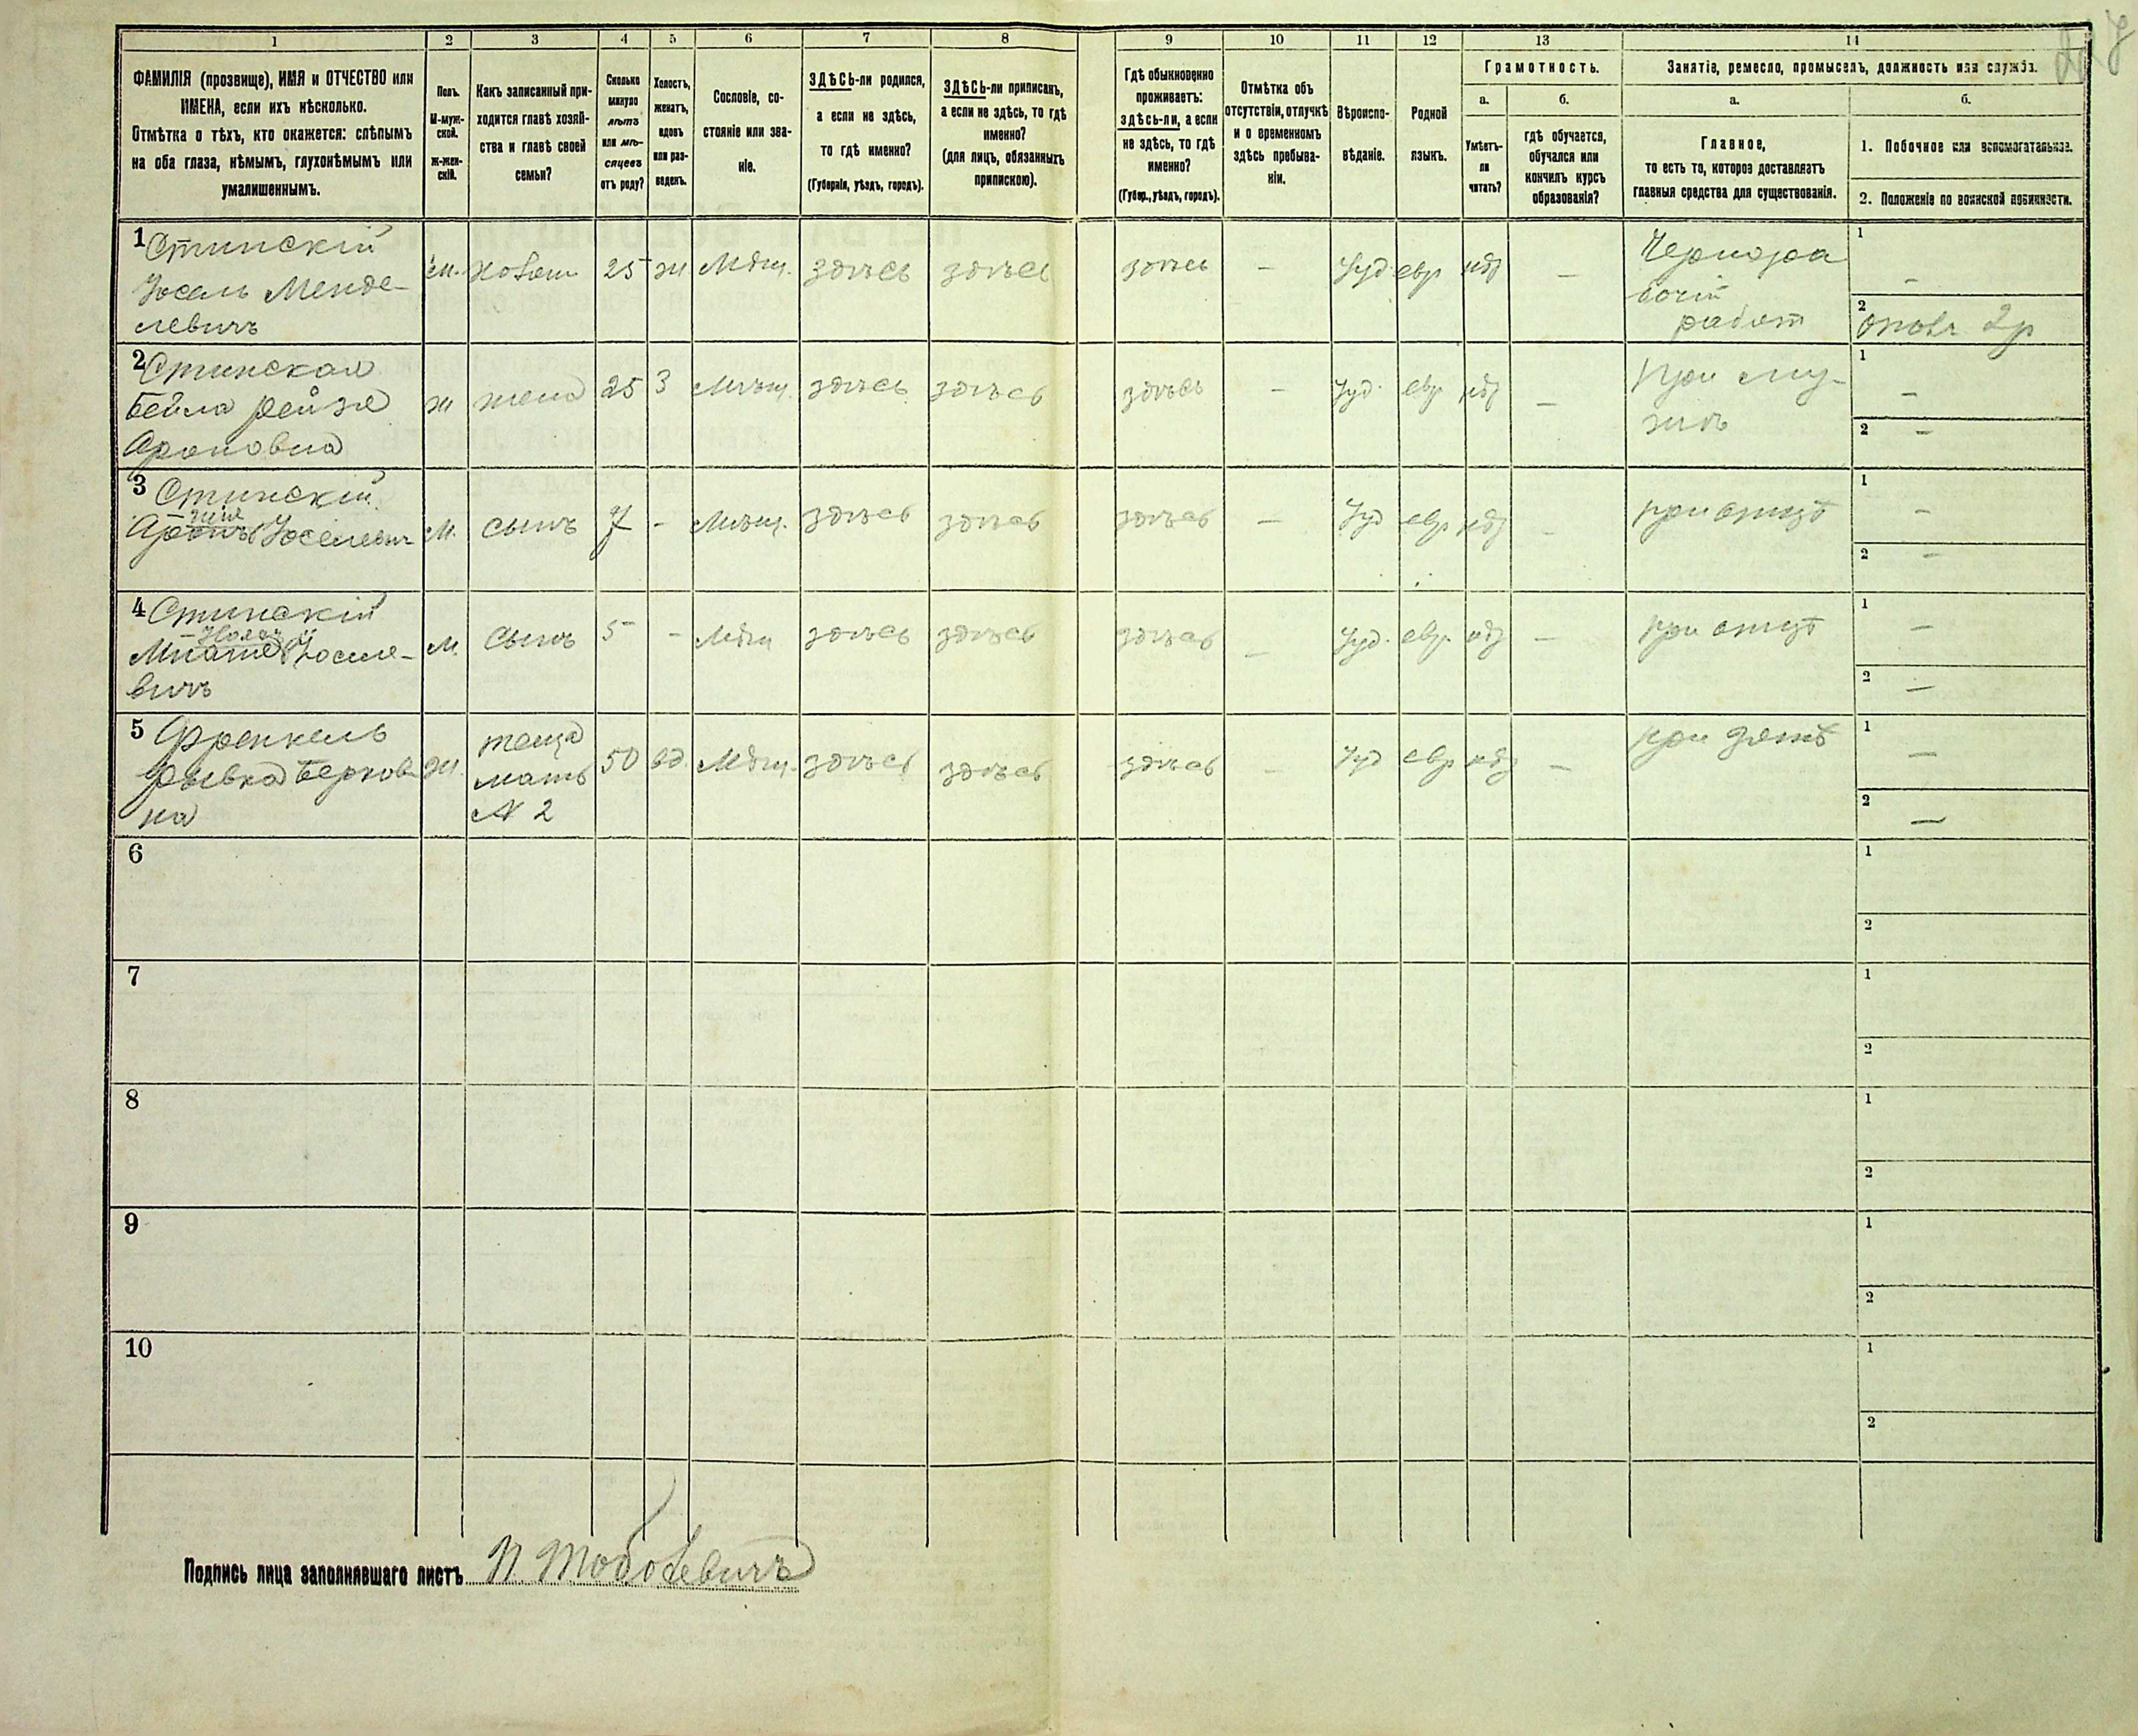 1 2 3 4 5 6 7 8 9 10 11 12 13 14
ФАМИЛІЯ (прозвище), ИМЯ и ОТЧЕСТВО или
ИМЕНА, если ихъ нѣсколько.
Отмѣтка о тѣхъ, кто окажется: слѣпымъ
на оба глаза, нѣмымъ, глухонѣмымъ или
умалишеннымъ.
Полъ.
М-муж-
ской.
Ж-жен-
скій.
Какъ записанный при-
ходится главѣ хозяй-
ства и главѣ своей
семьи?
Сколько
минуло
лѣтъ
или мѣ-
сяцевъ
отъ роду?
Холостъ,
женатъ,
вдовъ
или раз-
веденъ.
Сословіе, со-
стояніе или зва-
ніе.
ЗДѢСЬ-ли родился,
а если не здѣсь,
то гдѣ именно?
(Губернія, уѣздъ, городъ).
ЗДѢСЬ-ли приписанъ,
а если не здѣсь, то гдѣ
именно?
(для лицъ, обязанныхъ
припискою).
Гдѣ обыкновенно
проживаетъ:
здѣсь-ли, а если
не здѣсь, то гдѣ
именно?
(Губер., уѣздъ, городъ).
Отмѣтка объ
отсутствіи, отлучкѣ
и о временномъ
здѣсь пребыва-
ніи.
Вѣроиспо-
вѣданіе.
Родной
языкъ.
Грамотность.
а.
Умѣетъ-
ли
читать?
б.
гдѣ обучается,
обучался или
кончилъ курсъ
образованія?
Занятіе, ремесло, промыселъ, должность или служба.
а.
Главное,
то есть то, которое доставляетъ
главныя средства для существованія.
б.
1. Побочное или вспомогательное.
2. Положеніе по воинской повинности.
1 Стинскій
Іосель Менде-
левичъ
м. хозяин 25 ж Мѣщ. здѣсь здѣсь здѣсь — Іуд евр нѣт —
Чернора
бочій
работ
1 —
2 2 р
2 Стинская
Бейла Рейзя
Ароновна
ж жена 25 З Мѣщ. здѣсь здѣсь здѣсь — Іуд. евр нѣт —
При му-
жѣ
1 —
2 —
3 Стинскій
Іоселевич
М. сынъ 7 - Мѣщ. здѣсь здѣсь здѣсь — Іуд евр нѣт —
при отцѣ
1 —
2 —
4 Стинскій
Іоселе-
вичъ
М. Сынъ 5 - Мѣщ здѣсь здѣсь здѣсь — Іуд. евр. нѣт —
при отцѣ
1 —
2 —
5 Френкель
Рывка Берков
на
Ж. теща
мать
№ 2
50 вд. Мѣщ. здѣсь здѣсь здѣсь — Іуд евр нѣт —
при зятѣ
1 —
2 —
6 1
2
7 1
2
8 1
2
9 1
2
10 1
2
Подпись лица заполнявшаго листъ